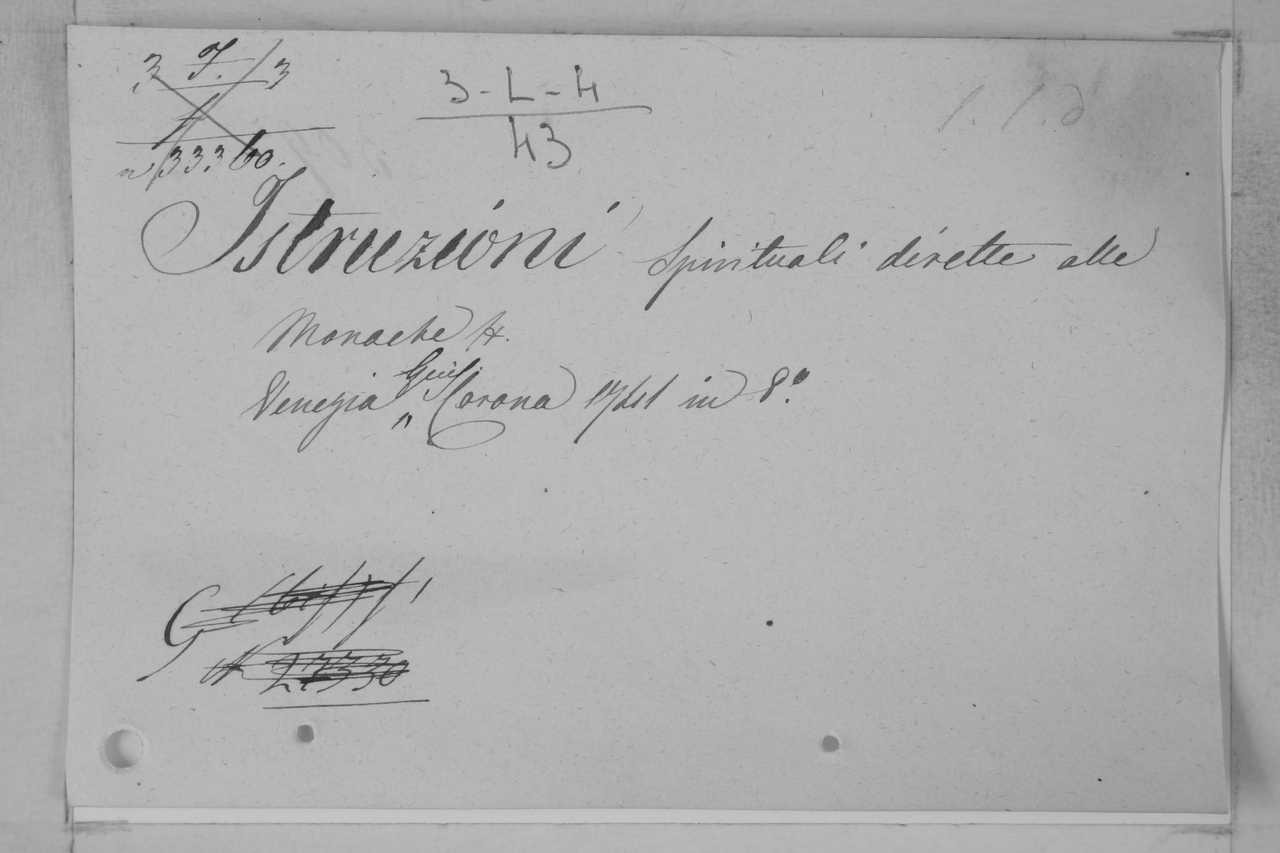 3 I. 3
n 33360.
3-L-4
43
Istruzioni Spirituali dirette alle
Monache H.
Venezia Gius. Corona 1741 in 8.º
G
N